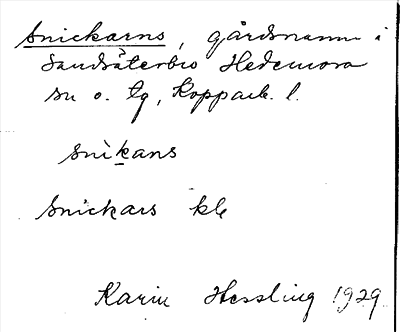 Snickarns, gårdsnamn i
Sandsäterbro Hedemora
sn o. tg, Kopparb. l.
snikans
Snickars kb
Karin Hessling 1929